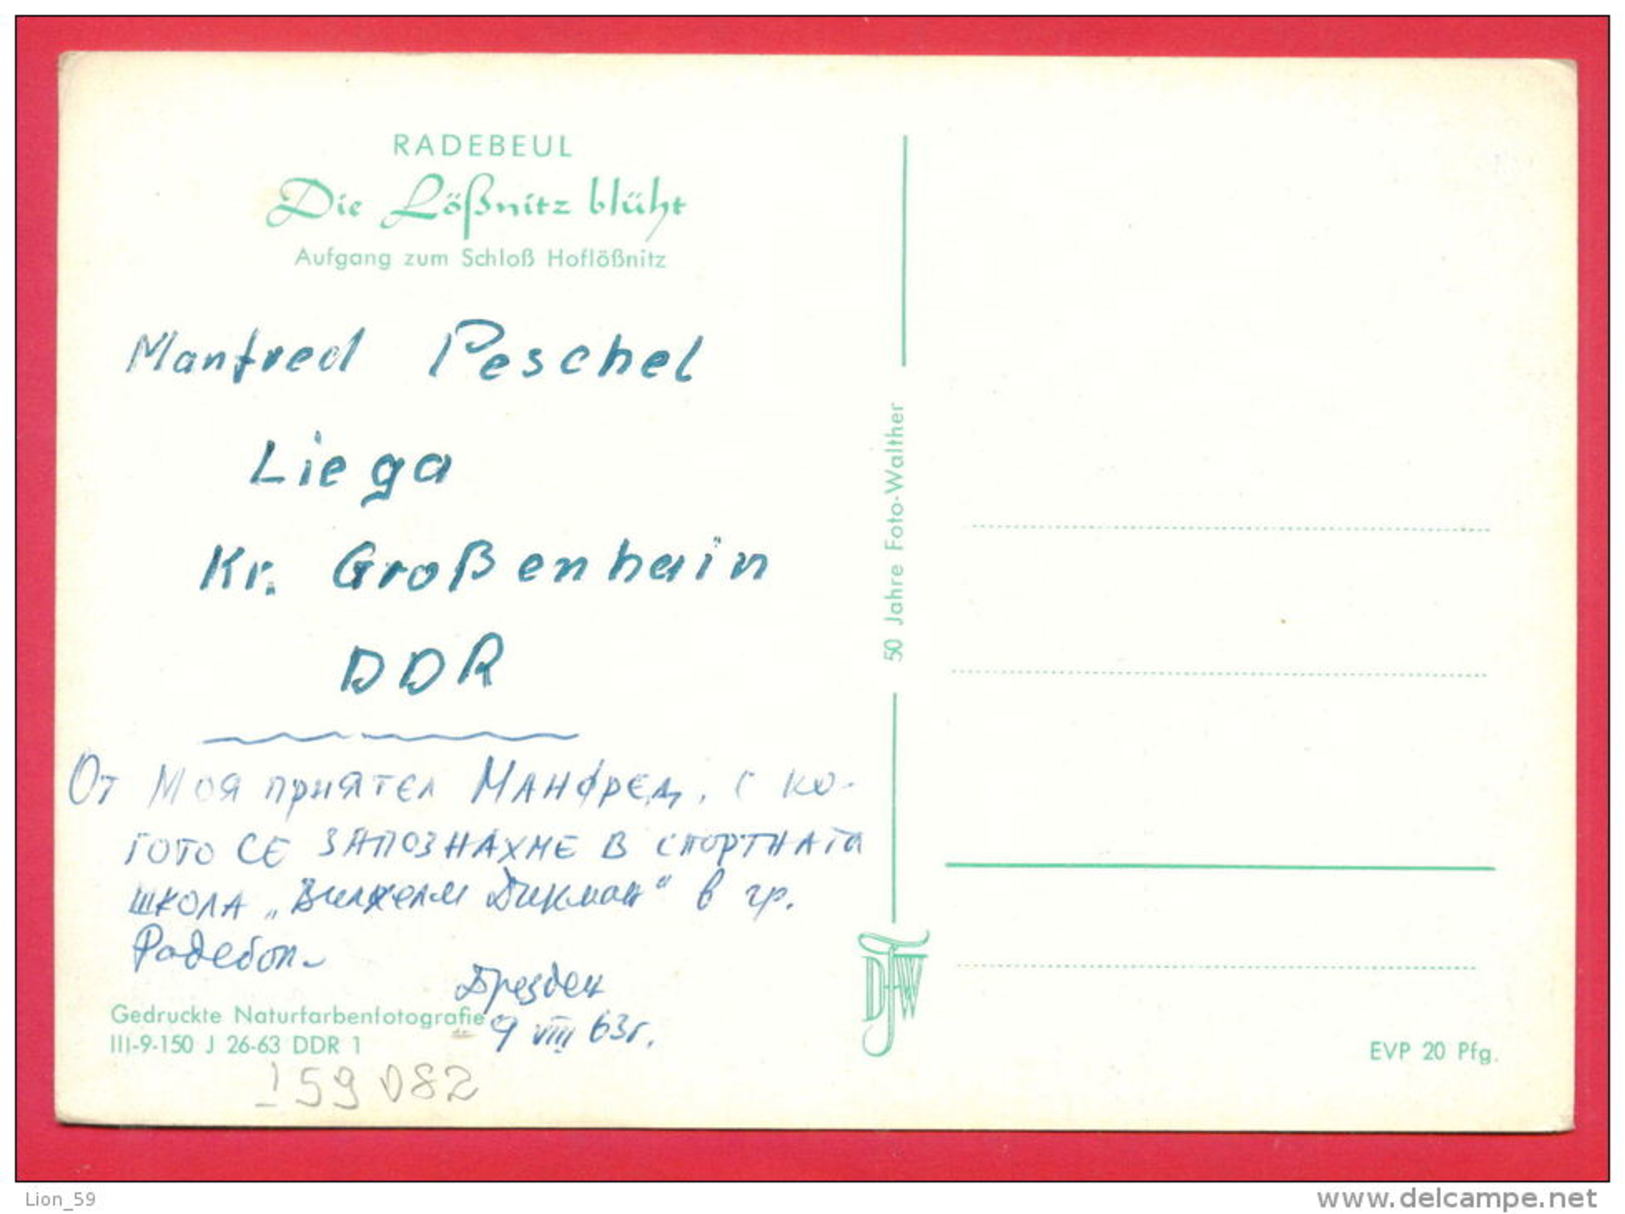 RADEBEUL
Die Lößnitz blüht
Aufgang zum Schloß Hoflößnitz
Manfred Peschel
Liega
Kr. Großenhain
DDR
От моя приятел Манфред, с ко-
гото се запознахме в спортната
школа „Вилхелм Дикман“ в гр.
Радебол.
Дрезден
9 VIII 63 г.
Gedruckte Naturfarbenfotografie
III-9-150 J 26-63 DDR 1
159082
50 Jahre Foto-Walther
DFW
EVP 20 Pfg.
Lion_59
www.delcampe.net